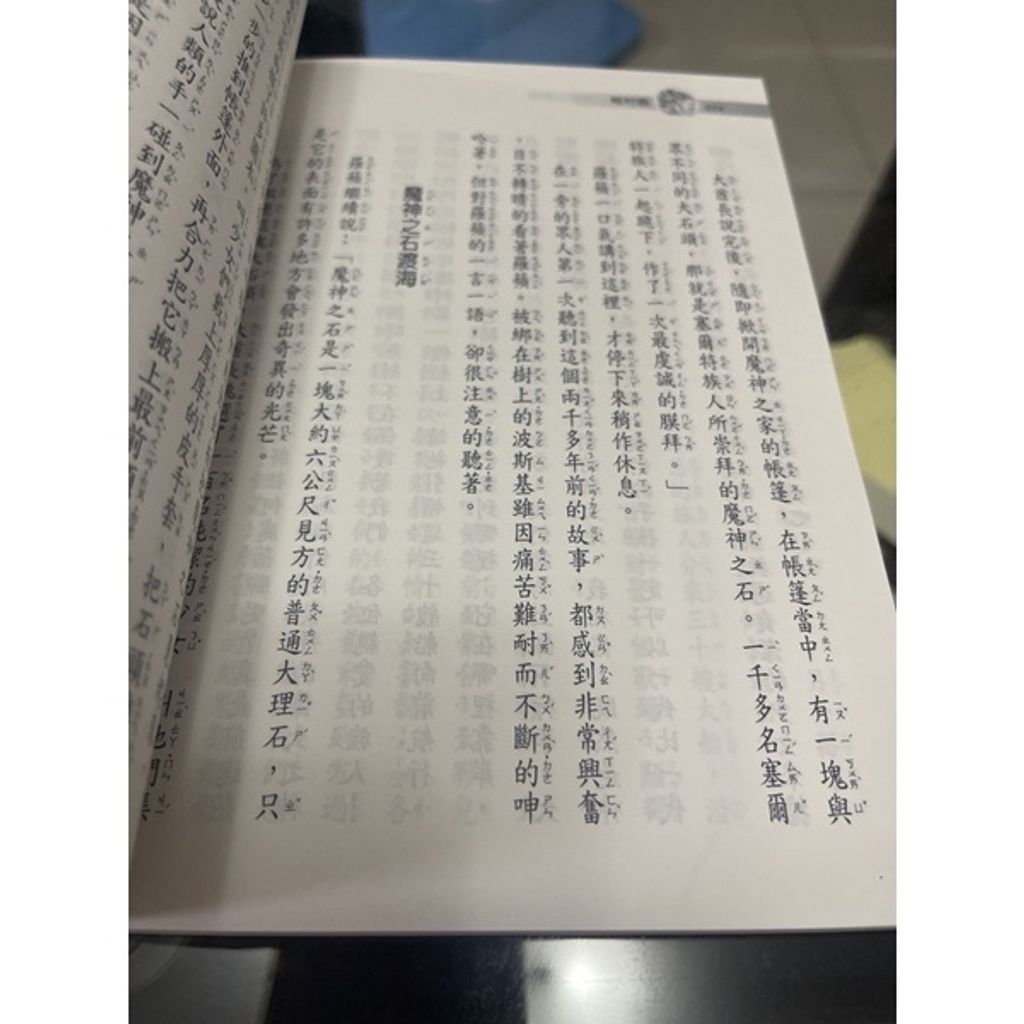 大酋長說完後，隨即掀開魔神之家的帳篷，在帳篷當中，有一塊與
眾不同的大石頭，那就是塞爾特族人所崇拜的魔神之石。一千多名塞爾
特族人一起跪下，作了一次最虔誠的膜拜。」
羅蘋一口氣講到這裡，才停下來稍作休息。
在一旁的眾人第一次聽到這個兩千多年前的故事，都感到非常興奮
，目不轉睛的看著羅蘋。被綁在樹上的波斯基雖因痛苦難耐而不斷的呻
吟著，但對羅蘋的一言一語，卻很注意的聽著。
魔神之石渡海
羅蘋繼續說：「魔神之石是一塊大約六公尺見方的普通大理石，只
是它的表面有許多地方會發出奇異的光芒。
少女們戴上厚厚的皮手套，把石
的推到帳篷外面，再合力把它搬上最前
說人類的手一碰到魔神